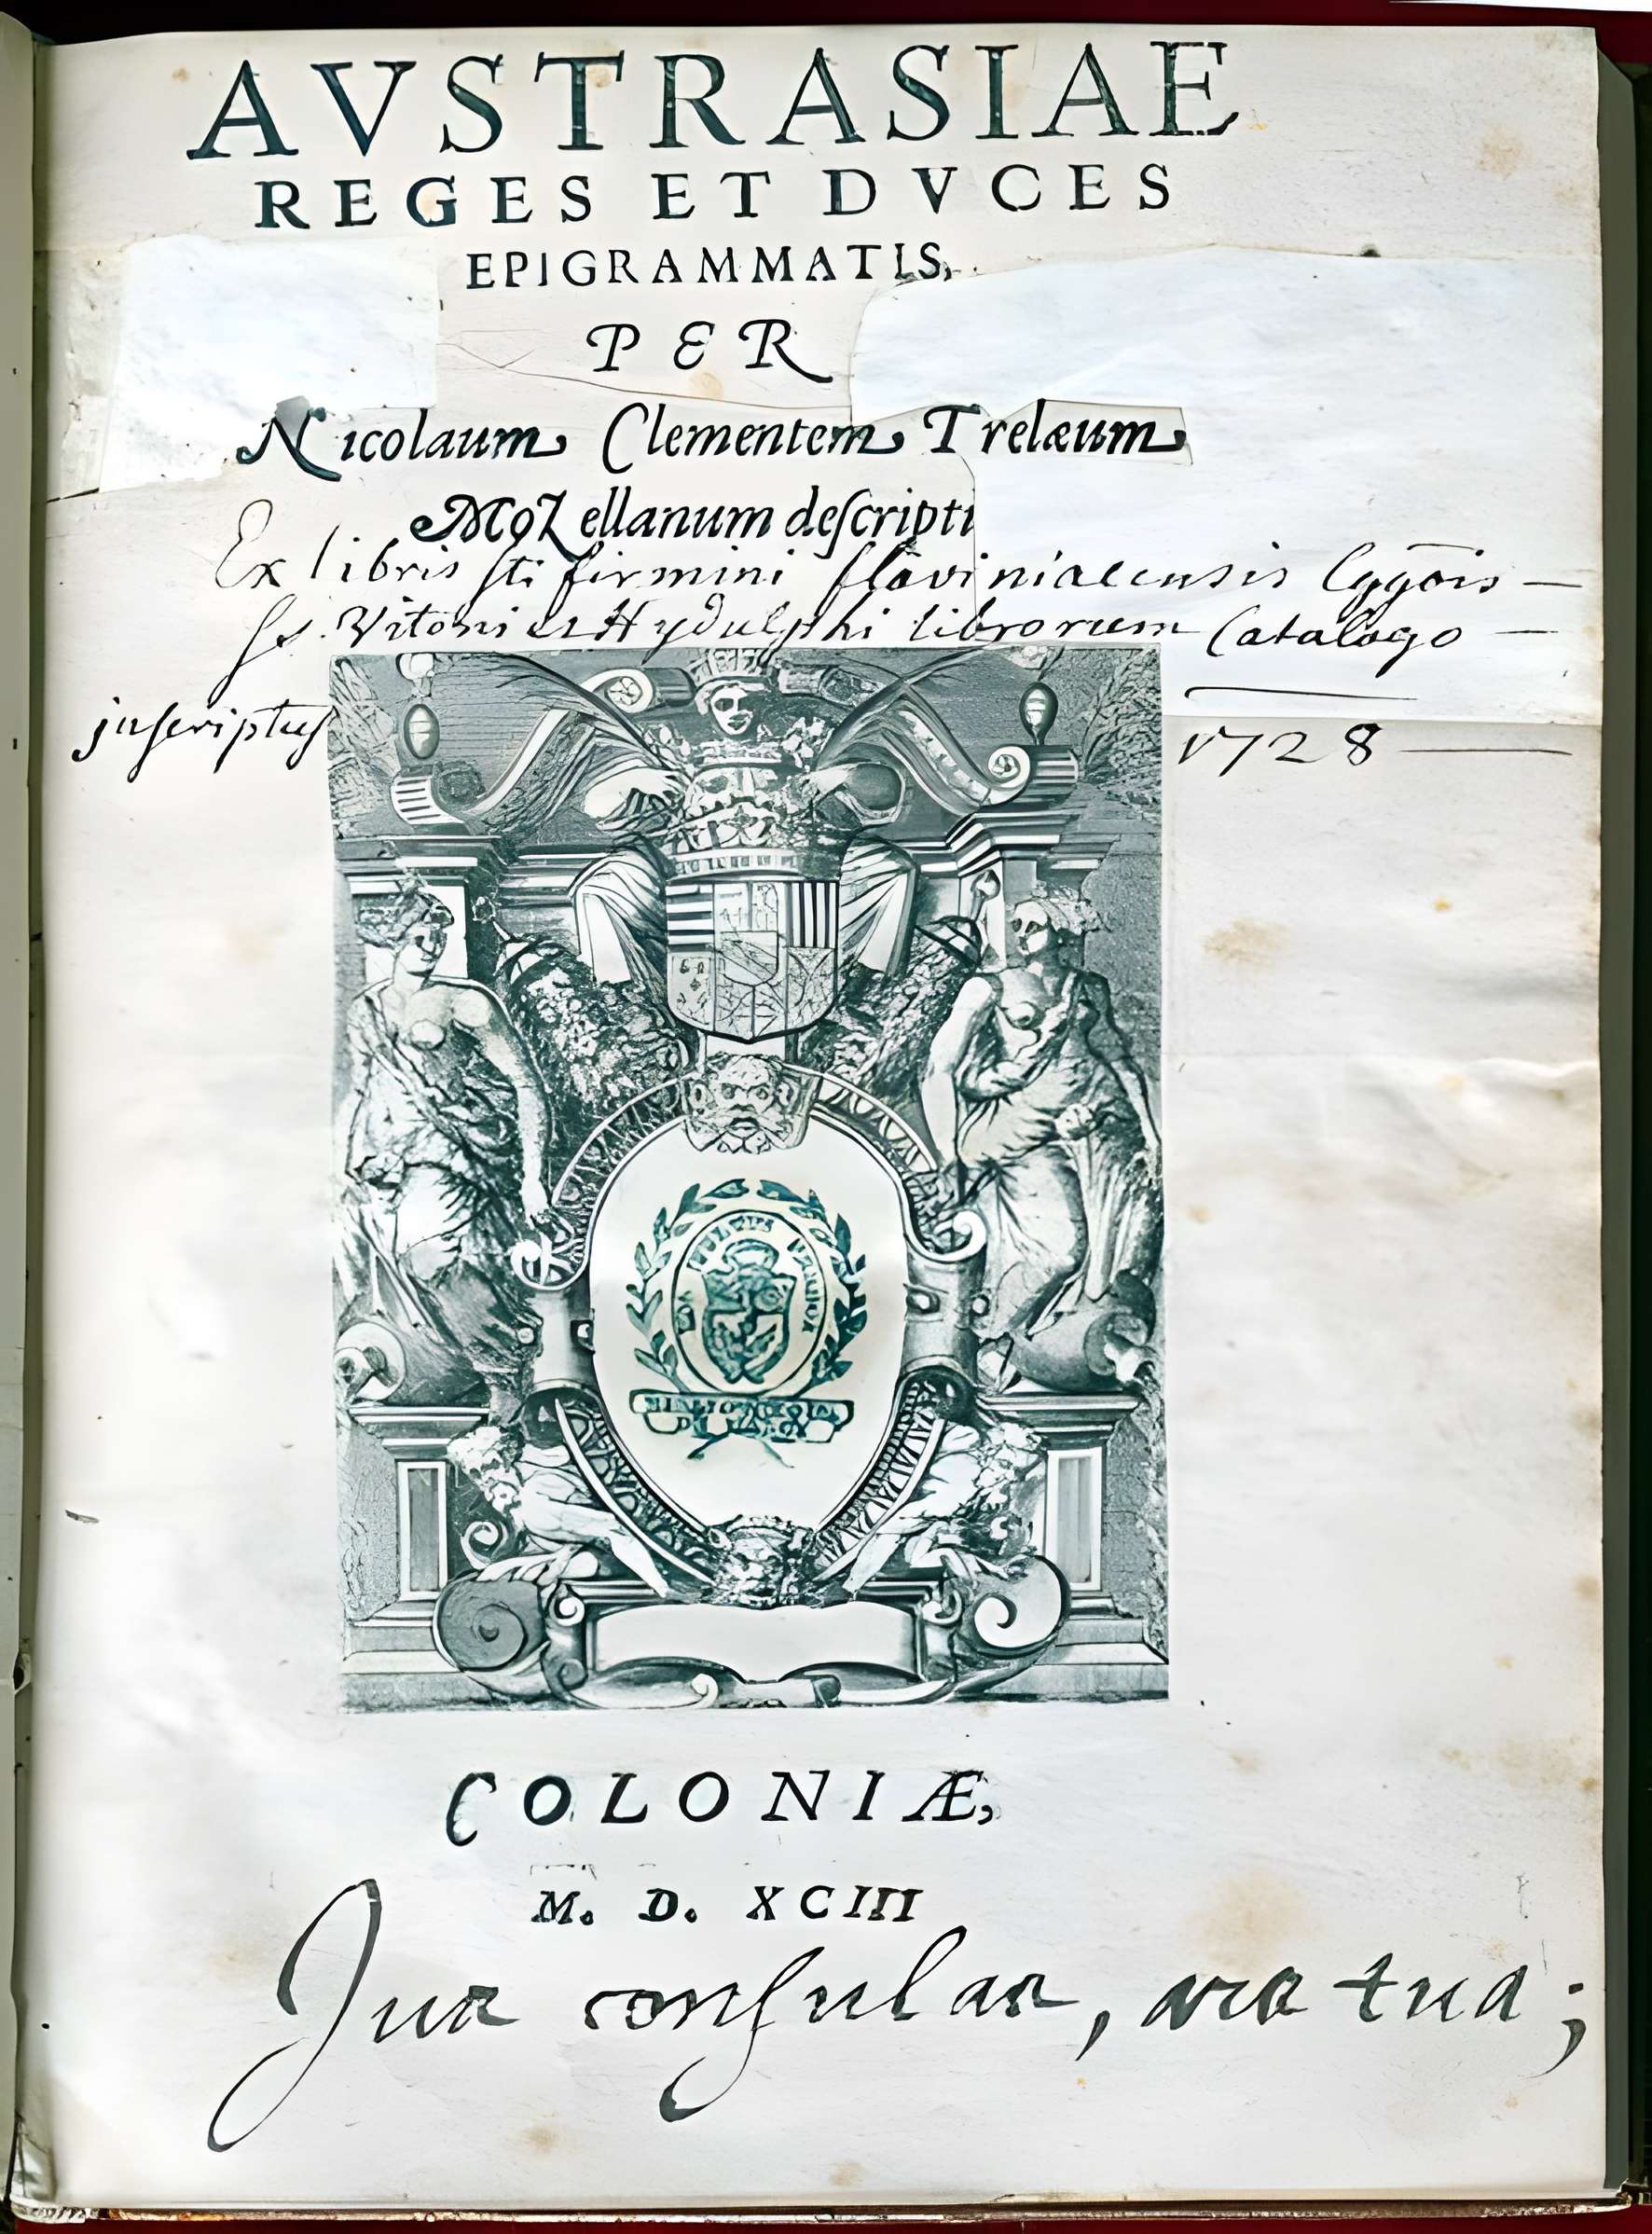 AVSTRASIAE
REGES ET DVCES
EPIGRAMMATIS,
PER
Nicolaum Clementem Trelæum
Mozellanum deſcripti
Ex libris ſti firmini flaviniacensis
Ss. Vitoni et Hydulphi librorum Catalogo
inscriptus 1728
COLONIÆ,
M. D. XCIII
tua;